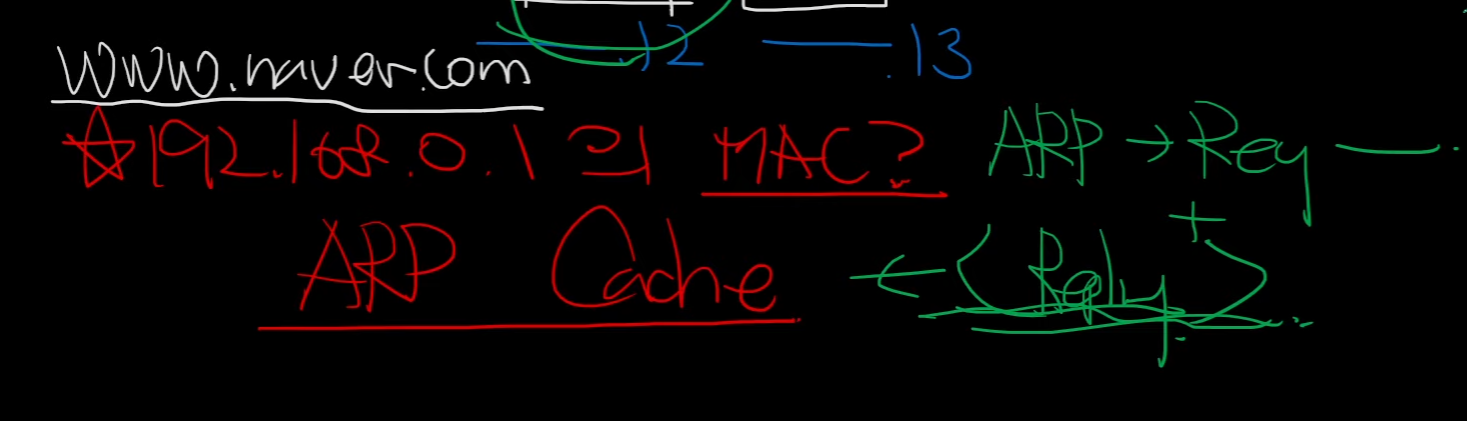 .12 .13
www.naver.com
☆192.168.0.1의 MAC? ARP → Rey
ARP Cache ← (Reply)